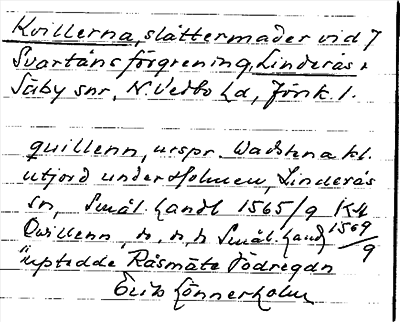 Kvillerna, slåttermader vid 7
Svartåns förgrening, Linderås o
Säby snr, N. Vedbo hd, Jönk. l.
quillenn, urspr. Wadstena kl.
utjord under Holmen, Linderås
sn, Smål. handl 1565/9 K4
Qvillenn, n, n, h Smål. handl 1569/9
uptedde Råsmäte
Erik Lönnerholm